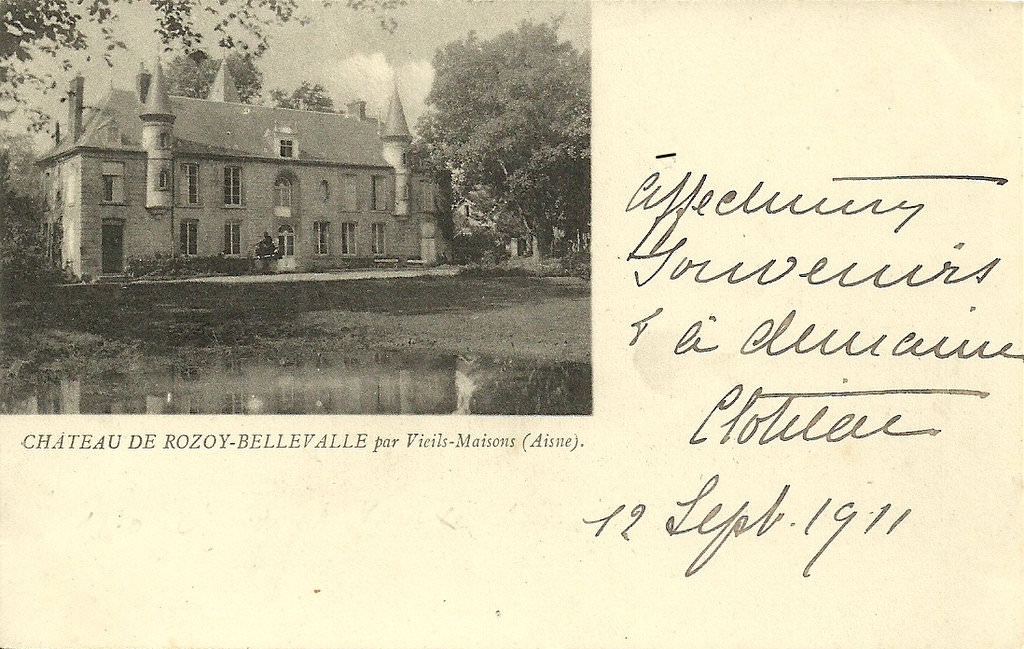 CHÂTEAU DE ROZOY-BELLEVALLE par Vieils-Maisons (Aisne).
Affectueux
Souvenirs
& à demain
Clotilde
12 Sept. 1911